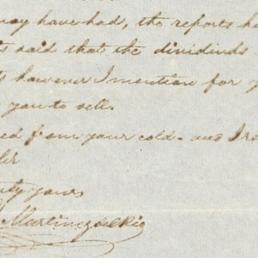 may have had, the reports ha
said that the dividinds
however I mention for y
you to sell.
ed from your cold. and I re
yours